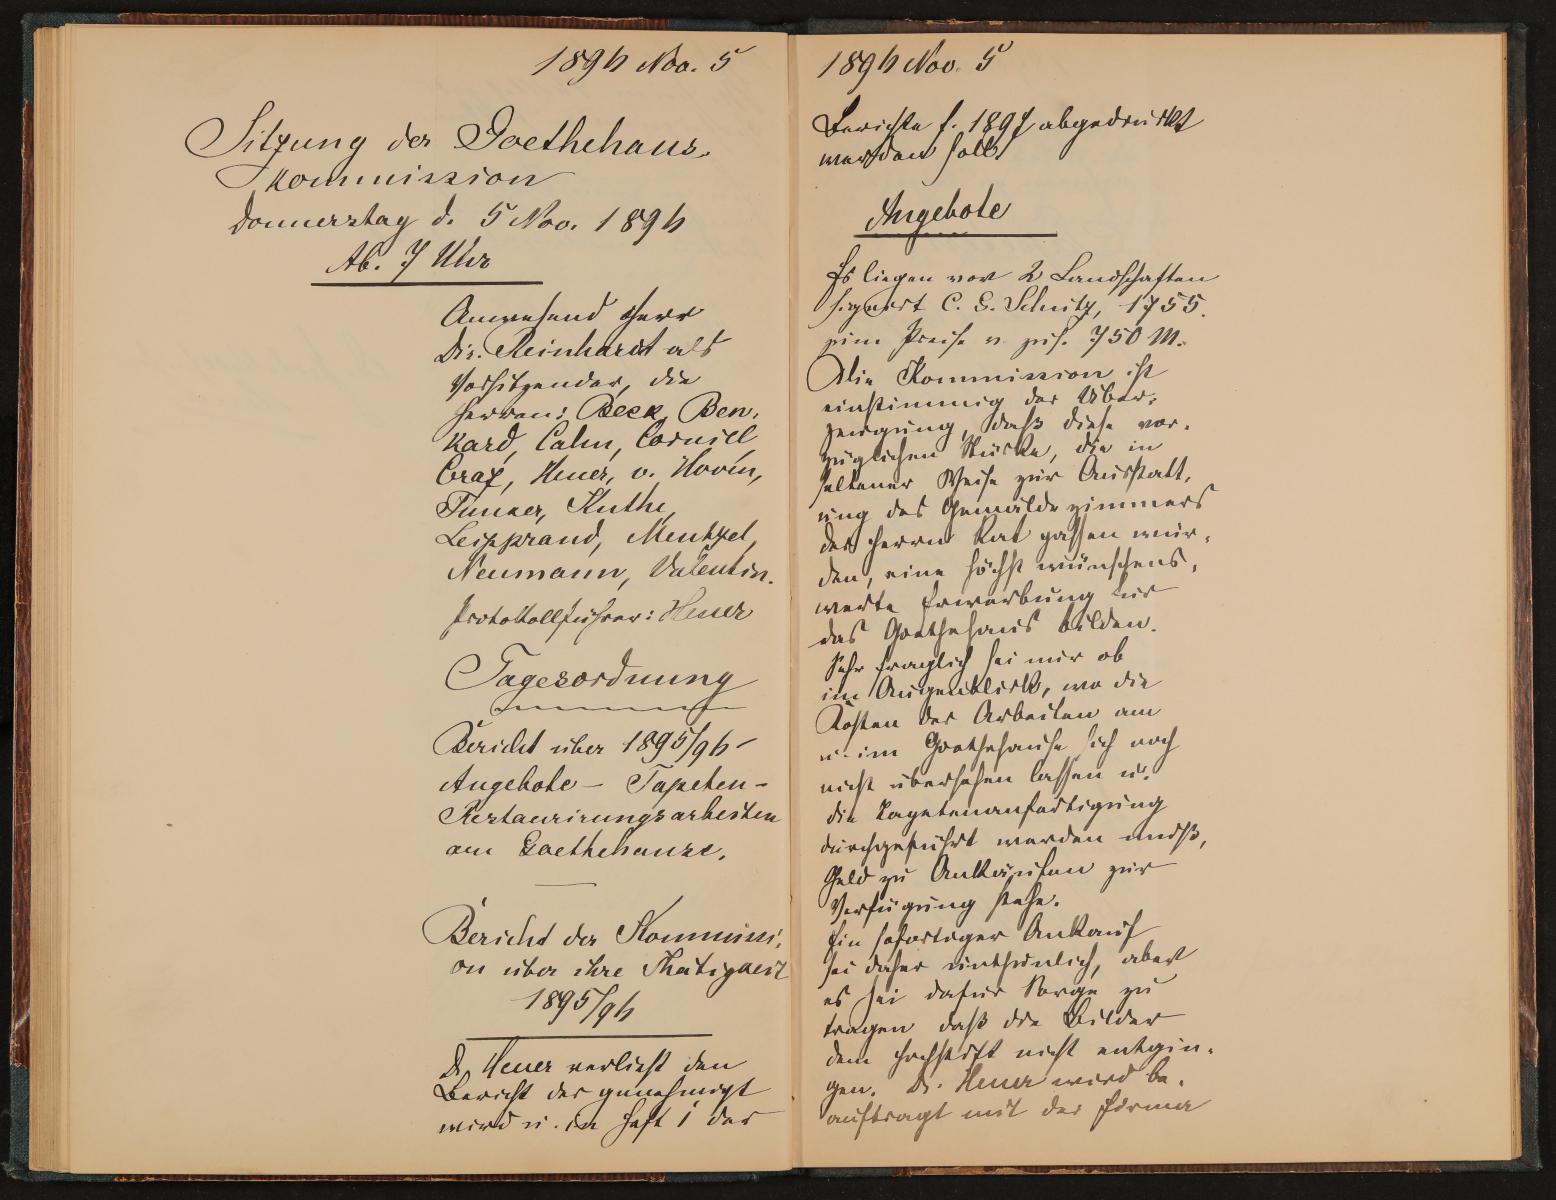 1896 Nov. 5
Sitzung der Goethehaus-
kommission
Donnerstag d. 5 Nov. 1896
Ab. 7 Uhr
Anwesend Herr
Dir. Reinhardt als
Vorsitzender, die
Herren: Beck, Ben-
kard, Cahn, Cornill
Graf, Heuer, v. Hoven,
Junker, Kuthe,
Leipprand, Mentzel,
Neumann, Valentin.
Protokollführer: Heuer
Tagesordnung
Bericht über 1895/96 –
Angebote – Tapeten –
Restaurirungsarbeiten
am Goethehause.
Bericht der Kommissi-
on über ihre Thätigkeit
1895/96
Dr. Heuer verliest den
Bericht der genehmigt
wird u. in Heft 1 der
1896 Nov. 5
Berichte f. 1897 abgedruckt
werden soll.
Angebote
Es liegen vor 2 Landschaften
signirt C. G. Schütz, 1755.
zum Preise v. zus. 750 M.
Die Kommission ist
einstimmig der Über-
zeugung, daß diese vor-
züglichen Stücke, die in
seltener Weise zur Ausstatt-
ung des Gemäldezimmers
des Herrn Rat passen wür-
den, eine höchst wünschens-
werte Erwerbung für
das Goethehaus bilden.
Sehr fraglich sei nur ob
im Augenblick, wo die
Kosten der Arbeiten am
u. im Goethehause sich noch
nicht übersehen lassen u.
die Tapetenanfertigung
durchgeführt werden muß,
Geld zu Ankäufen zur
Verfügung stehe.
Ein sofortiger Ankauf
sei daher unthunlich, aber
es sei dafür Sorge zu
tragen daß die Bilder
dem Hochstift nicht entgin-
gen. Dr. Heuer wird be-
auftragt mit der Firma